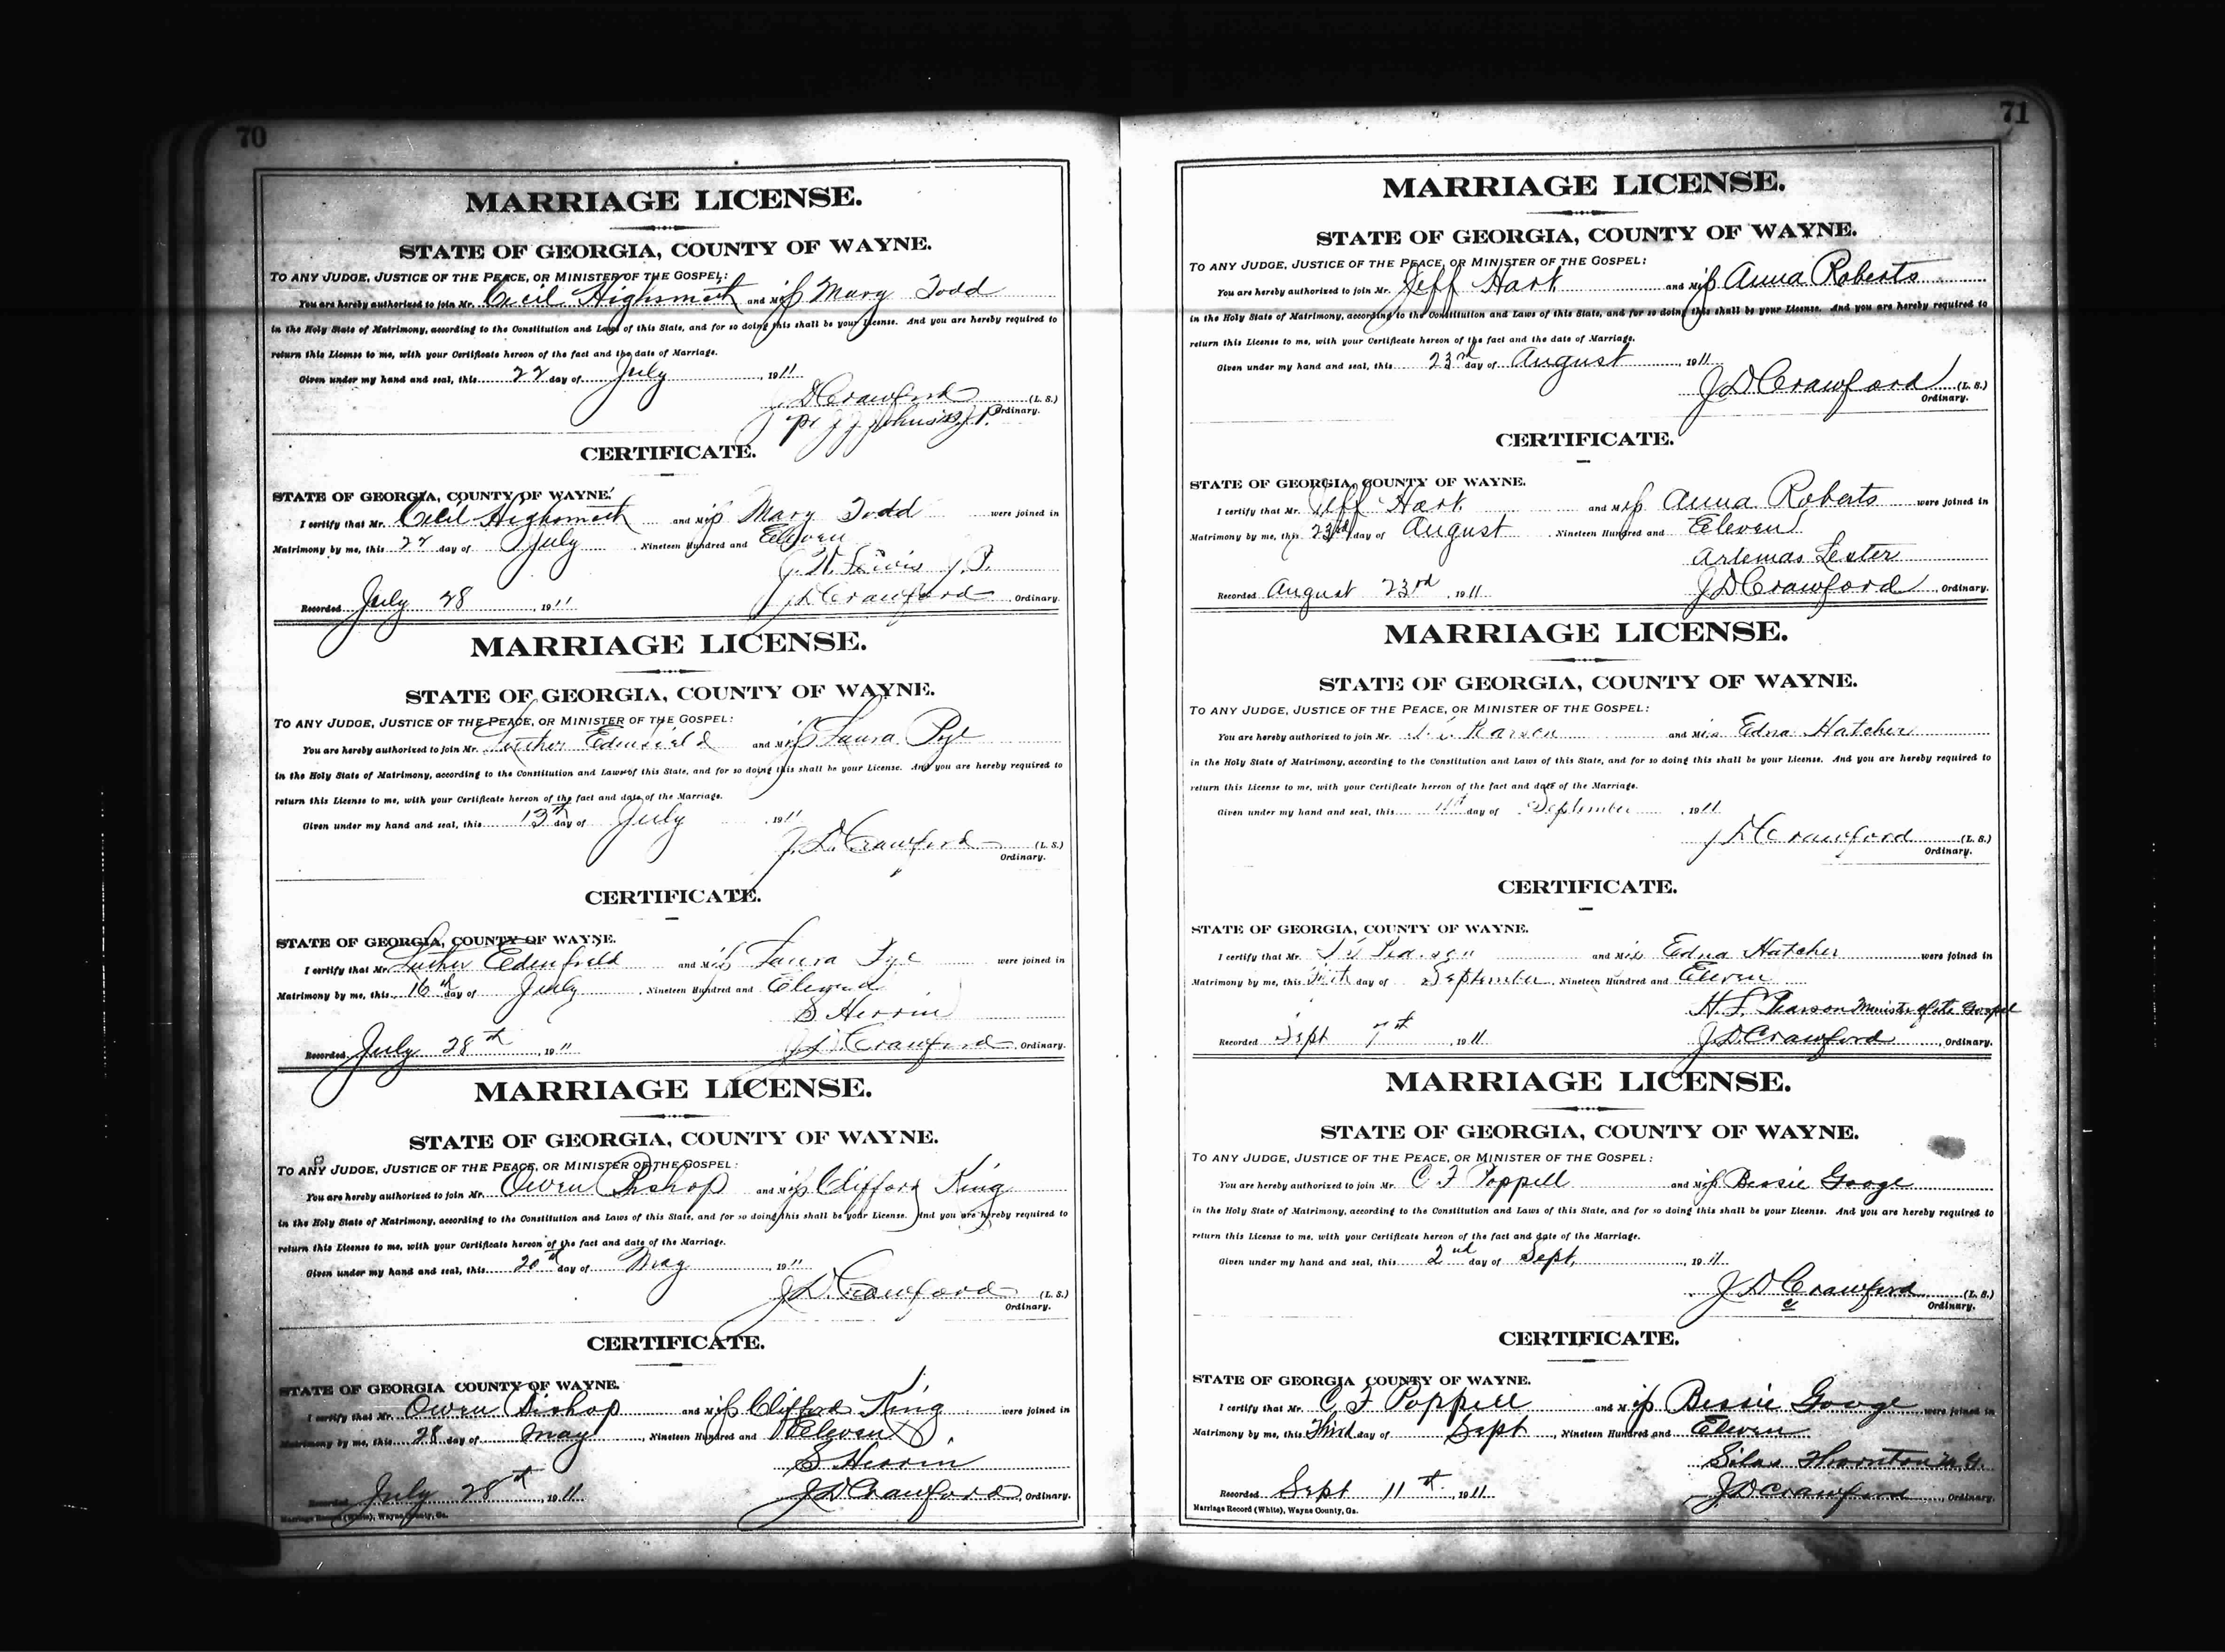 70
MARRIAGE LICENSE.
STATE OF GEORGIA, COUNTY OF WAYNE.
TO ANY JUDGE, JUSTICE OF THE PEACE, OR MINISTER OF THE GOSPEL:
You are hereby authorized to join Mr. Cecil Highsmith and Miss Mary Todd
in the Holy State of Matrimony, according to the Constitution and Laws of this State, and for so doing this shall be your License. And you are hereby required to
return this License to me, with your Certificate hereon of the fact and the date of Marriage.
Given under my hand and seal, this 22 day of July, 1911
J D Crawford (L. S.)
pr J J Johnson J.P. Ordinary.
CERTIFICATE.
STATE OF GEORGIA, COUNTY OF WAYNE.
I certify that Mr. Cecil Highsmith and Miss Mary Todd were joined in
Matrimony by me, this 22 day of July, Nineteen Hundred and Eleven
Lewis J.P.
Recorded July 28, 1911 J D Crawford, Ordinary.
MARRIAGE LICENSE.
STATE OF GEORGIA, COUNTY OF WAYNE.
TO ANY JUDGE, JUSTICE OF THE PEACE, OR MINISTER OF THE GOSPEL:
You are hereby authorized to join Mr. Luther Edenfield and Miss Laura Pye
in the Holy State of Matrimony, according to the Constitution and Laws of this State, and for so doing this shall be your License. And you are hereby required to
return this License to me, with your Certificate hereon of the fact and date of the Marriage.
Given under my hand and seal, this day of July, 1911
J. D. Crawford (L. S.)
Ordinary.
CERTIFICATE.
STATE OF GEORGIA, COUNTY OF WAYNE.
I certify that Mr. Luther Edenfield and Miss Laura Pye were joined in
Matrimony by me, this 16th day of July, Nineteen Hundred and Eleven
S Herrin
Recorded July 28th, 1911 J. D. Crawford, Ordinary.
MARRIAGE LICENSE.
STATE OF GEORGIA, COUNTY OF WAYNE.
TO ANY JUDGE, JUSTICE OF THE PEACE, OR MINISTER OF THE GOSPEL:
You are hereby authorized to join Mr. Owen Bishop and Miss Clifford King
in the Holy State of Matrimony, according to the Constitution and Laws of this State, and for so doing this shall be your License. And you are hereby required to
return this License to me, with your Certificate hereon of the fact and date of the Marriage.
Given under my hand and seal, this 20th day of May, 1911
J. D. Crawford (L. S.)
Ordinary.
CERTIFICATE.
STATE OF GEORGIA COUNTY OF WAYNE.
I certify that Mr. Owen Bishop and Miss Clifford King were joined in
Matrimony by me, this 28 day of May, Nineteen Hundred and Eleven
S Herrin
Recorded July 28th, 1911 J D Crawford, Ordinary.
Marriage Record (White), Wayne County, Ga.
71
MARRIAGE LICENSE.
STATE OF GEORGIA, COUNTY OF WAYNE.
TO ANY JUDGE, JUSTICE OF THE PEACE, OR MINISTER OF THE GOSPEL:
You are hereby authorized to join Mr. Jeff Hart and Miss Anna Roberts
in the Holy State of Matrimony, according to the Constitution and Laws of this State, and for so doing this shall be your License. And you are hereby required to
return this License to me, with your Certificate hereon of the fact and the date of Marriage.
Given under my hand and seal, this 23rd day of August, 1911
J D Crawford (L. S.)
Ordinary.
CERTIFICATE.
STATE OF GEORGIA, COUNTY OF WAYNE.
I certify that Mr. Jeff Hart and Miss Anna Roberts were joined in
Matrimony by me, this 23rd day of August, Nineteen Hundred and Eleven
Artemas Lester
Recorded August 23rd, 1911 J D Crawford, Ordinary.
MARRIAGE LICENSE.
STATE OF GEORGIA, COUNTY OF WAYNE.
TO ANY JUDGE, JUSTICE OF THE PEACE, OR MINISTER OF THE GOSPEL:
You are hereby authorized to join Mr. and Miss Edna Hatcher
in the Holy State of Matrimony, according to the Constitution and Laws of this State, and for so doing this shall be your License. And you are hereby required to
return this License to me, with your Certificate hereon of the fact and date of the Marriage.
Given under my hand and seal, this day of September, 1911
J D Crawford (L. S.)
Ordinary.
CERTIFICATE.
STATE OF GEORGIA, COUNTY OF WAYNE.
I certify that Mr. and Miss Edna Hatcher were joined in
Matrimony by me, this day of September, Nineteen Hundred and Eleven
Pearson Minister of the Gospel
Recorded Sept, 1911 J. D. Crawford, Ordinary.
MARRIAGE LICENSE.
STATE OF GEORGIA, COUNTY OF WAYNE.
TO ANY JUDGE, JUSTICE OF THE PEACE, OR MINISTER OF THE GOSPEL:
You are hereby authorized to join Mr. C F Poppell and Miss Bessie Googe
in the Holy State of Matrimony, according to the Constitution and Laws of this State, and for so doing this shall be your License. And you are hereby required to
return this License to me, with your Certificate hereon of the fact and date of the Marriage.
Given under my hand and seal, this 2nd day of Sept, 1911
J D Crawford (L. S.)
Ordinary.
CERTIFICATE.
STATE OF GEORGIA COUNTY OF WAYNE.
I certify that Mr. C F Poppell and Miss Bessie Googe were joined in
Matrimony by me, this Third day of Sept, Nineteen Hundred and Eleven
Silas Thornton M.G.
Recorded Sept 11th, 1911 J D Crawford, Ordinary.
Marriage Record (White), Wayne County, Ga.